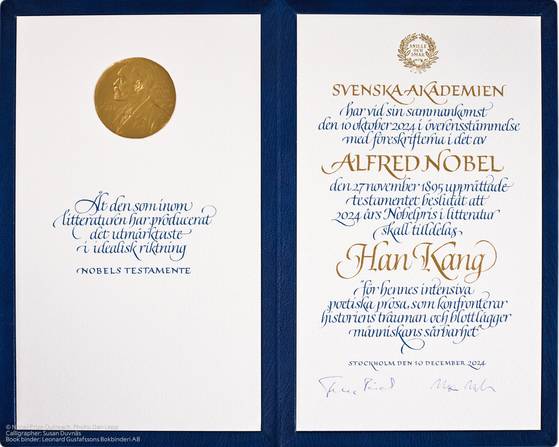 Åt den som inom
litteraturen har producerat
det utmärktaste
i idealisk riktning
NOBELS TESTAMENTE
SNILLE
OCH
SMAK
SVENSKA AKADEMIEN
har vid sin sammankomst
den 10 oktober 2024 i överensstämmelse
med föreskrifterna i det av
ALFRED NOBEL
den 27 november 1895 upprättade
testamentet beslutat att
2024 års Nobelpris i litteratur
skall tilldelas
Han Kang
"för hennes intensiva
poetiska prosa, som konfronterar
historiens trauman och blottlägger
människans sårbarhet"
STOCKHOLM DEN 10 DECEMBER 2024
Photo: Dan Lepp
Calligrapher: Susan Duvnäs
Book binder: Leonard Gustafssons Bokbinderi AB